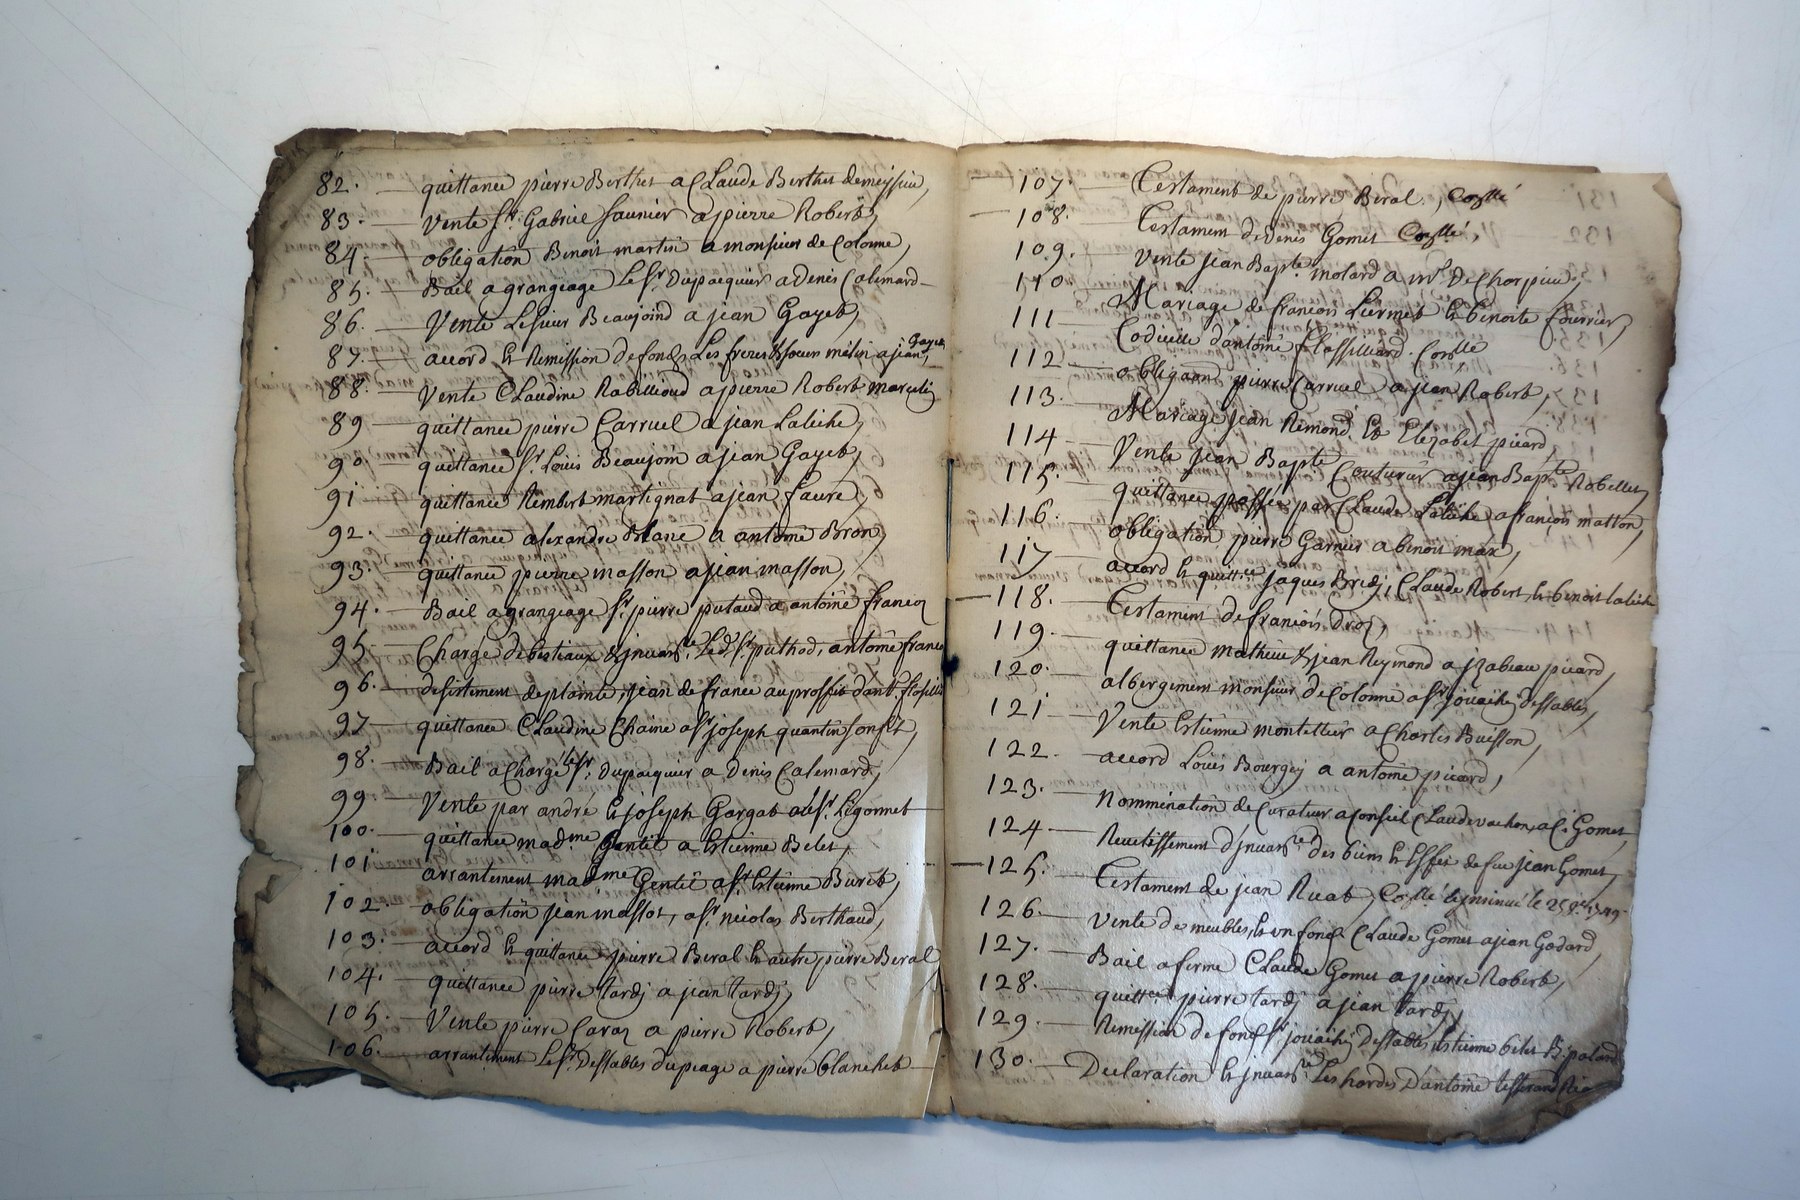 82. quittance pierre Berthet a Claude Berthet de meyssin,
83. Vente Sr. Gabriel Saunier a pierre Robert,
84. obligation Benoit martin a monsieur de Colonne,
85. Bail a grangeage le Sr. Dupacquier a Denis Calemard
86. Vente Le sieur Beaujoind a jean Gayet,
87. accord & Remission de fonds Les freres & soeur mélin a jean Gayet,
88. Vente Claudine Rabillioud a pierre Robert marcelin
89 quittance pierre Carruel a jean Laléche,
90. quittance Sr. Louis Beaujoin a jean Gayet,
91 quittance Rembert martignat a jean faure,
92. quittance alexandre Blanc a antoine Bron,
93. quittance pierre masson a jean masson,
94. Bail a grangeage Sr. pierre putaud a antoine francoz
95. Charge de bestiaux & jnvanre. Led. Sr. puthod, antoine franco
96. desistement de plainte, jean de france au proffit dant. flosillia
97 quittance Claudine Chaine a Sr joseph quantin son filz,
98. Bail a Charge le Sr. Dupacquier a Denis Calemard,
99 Vente par andré & joseph Gargat au Sr. Legonnet
100. quittance madme Gentil a Estienne Belet,
101 arrantement madme Gentil a Sr. Estienne Buret,
102. obligation jean massot, a Sr nicolas Berthaud,
103. accord & quittance pierre Beral & autre pierre Beral
104. quittance pierre tardj a jean tardj,
105. Vente pierre Caraz a pierre Robert,
106. arrantement Le Sr. Desstables du peage a pierre blanchet
107. Testament de pierre Beral, Coptté
108. Testament de Denis Gomet Coptté,
109. Vente jean Bapte. molard a mr. De Chorpine,
110 Mariage de francois Liermet & benoite Courrier,
111 Codicille d'antoine flossilliard. Coptté
112 obligaon pierre Carruel a jean Robert,
113. Mariage jean Remond & Elizabet picard
114 Vente jean Bapte Couturier a jean Bapte Robellet,
115. quittance passée par Claude Laléche a francois matton,
116. obligation pierre Garnier a benoit max,
117 accord & quittce jaques Bridj, Claude Robert & benoit laléche
118. Testament de francois droz,
119. quittance mathieu & jean Reymond a jzabeau picard,
120. albergement monsieur de Colonne a Sr jouachin desstables,
121 Vente Estienne montellier a Charles Buisson,
122. accord Louis Bourgej a antoine picard,
123. Nommination de Curateur a Conseil Claude vachon, a C. Gomet,
124 Revetissement d'jnvanred des biens & Effes de feu jean Gomet,
125. Testament de jean Ruat, Coptté & jnsinué le 25
126. Vente de meubles, & un fonds Claude Gomet a jean Godard,
127. Bail a ferme Claude Gomet a pierre Robert,
128. quittce pierre tardj a jean tardj,
129. Remission de fonds Sr jouachin Desstables, Estienne belet B. palard
130. Declaration & jnvanre Les hardes D'antoine tisserand